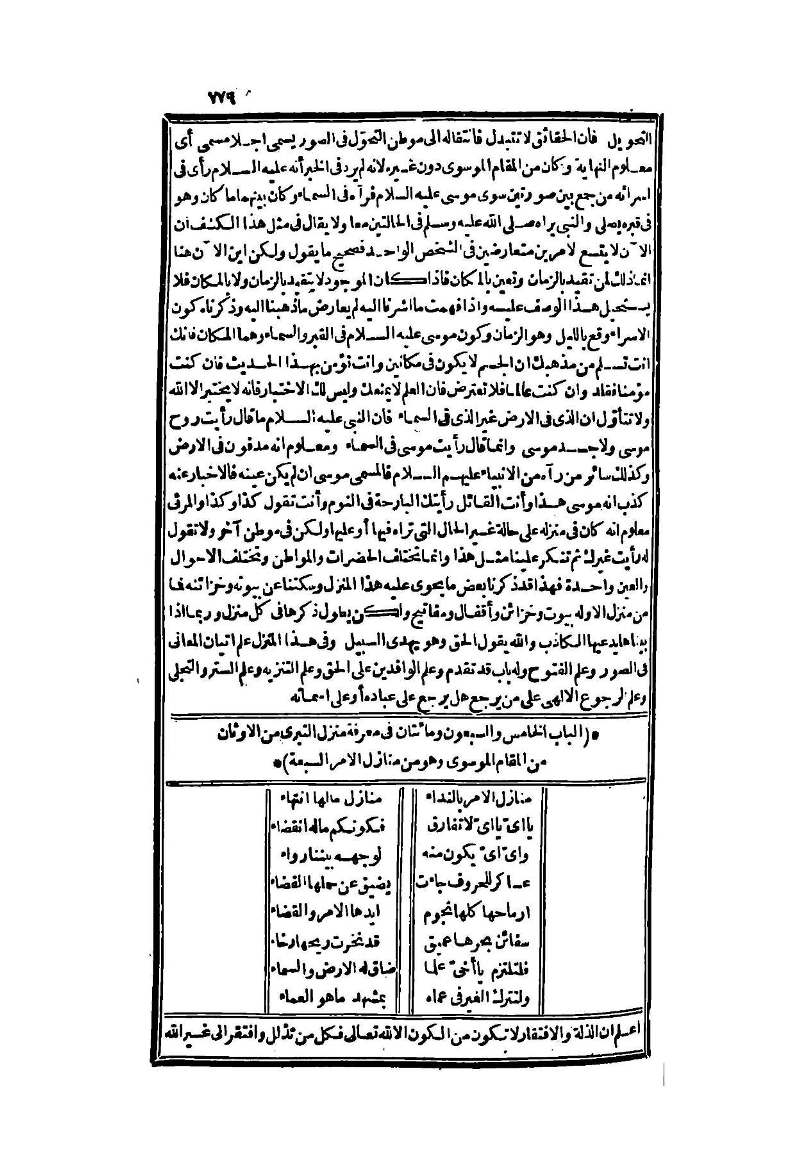 ٧٧٩
التحويل فان الحقائق لا تتبدل فانتقاله الى موطن التحوّل فى الصور يسمى اجلا مسمى أى
معلوم النهاية وكان من المقام الموسوى دون غيره لانه لم يرد فى الخبر أنه عليه السلام رأى فى
اسرائه من جمع بين صورتين سوى موسى عليه السلام فرآه فى السماء وكان بينهما ما كان وهو
فى قبره يصلى والنبى يراه صلى الله عليه وسلم فى الحالتين معا ولا يقال فى مثل هذا الكشف ان
الآن لا يتسع لامرين متعارضين فى الشخص الواحد فصحيح ما يقول ولكن اين الآن هنا
انما ذلك لمن تقيد بالزمان وتعين بالمكان فاذا كان الموجود لا يتقيد بالزمان ولا بالمكان فلا
يستحيل هذا الوصف عليه واذا فهمت ما اشرنا اليه لم يعارض ما ذهبنا اليه وذكرناه كون
الاسراء وقع بالليل وهو الزمان وكون موسى عليه السلام فى القبر والسماء وهما المكان فانك
انت تسلم من مذهبك ان الجسم لا يكون فى مكانين وانت تؤمن بهذا الحديث فان كنت
مؤمنا فقلد وان كنت عالما فلا تعترض فان العلم لا يمنعك وليس لك الاختبار فانه لا يختبر الا الله
ولا تتأوّل ان الذى فى الارض غير الذى فى السماء فان النبى عليه السلام ما قال رأيت روح
موسى ولا جسد موسى وانما قال رأيت موسى فى السماء ومعلوم انه مدفون فى الارض
وكذلك سائر من رآه من الانبياء عليهم السلام فالمسمى موسى ان لم يكن عينه فالاخبار عنه
كذب انه موسى هذا وأنت القائل رأيتك البارحة فى النوم وأنت تقول كذا وكذا والمرئى
معلوم انه كان فى منزله على حالة غير الحال التى تراه فيها أو عليها ولكن فى موطن آخر ولا تقول
له رأيت غيرك ثم تنكر علينا مثل هذا وانما تختلف الحضرات والمواطن وتختلف الاحوال
والعين واحدة فهذا قد ذكرنا بعض ما يحوى عليه هذا المنزل وسكتنا عن بيوته وخزائنه فما
من منزل الا وله بيوت وخزائن وأقفال ومفاتيح ولكن يطول ذكرها فى كل منزل وربما اذا
بيناها يدعيها الكاذب والله يقول الحق وهو يهدى السبيل وفى هذا المنزل علم اتيان المعانى
فى الصور وعلم الفتوح وله باب قد تقدم وعلم الوافدين على الحق وعلم التنزيه وعلم الستر والتجلى
وعلم الرجوع الالهى على من يرجع هل يرجع على عباده أو على اسمائه
*(الباب الخامس والسبعون ومائتان فى معرفة منزل التبرى من الاوثان
من المقام الموسوى وهو من منازل الامر السبعة)*
منازل الامر بالنداء منازل مالها انتهاء
يا اىّ يا اىّ لا تفارق فكونكم ماله انقضاء
واىّ اىّ يكون منه لوجهه بيننا رواء
عساكر للحروف جاءت يضيق عن حملها الفضاء
ارماحها كلها نجوم ايدها الامر والقضاء
سفائن بحرها عميق قد نخرت ريحها رخاء
فلتلتزم يا أخىّ علما ضاق له الارض والسماء
ولتترك الغير فى عماء بمشهد ما هو العماء
اعلم ان الذلة والافتقار لا تكون من الكون الا لله تعالى فكل من تذلل وافتقر الى غير الله